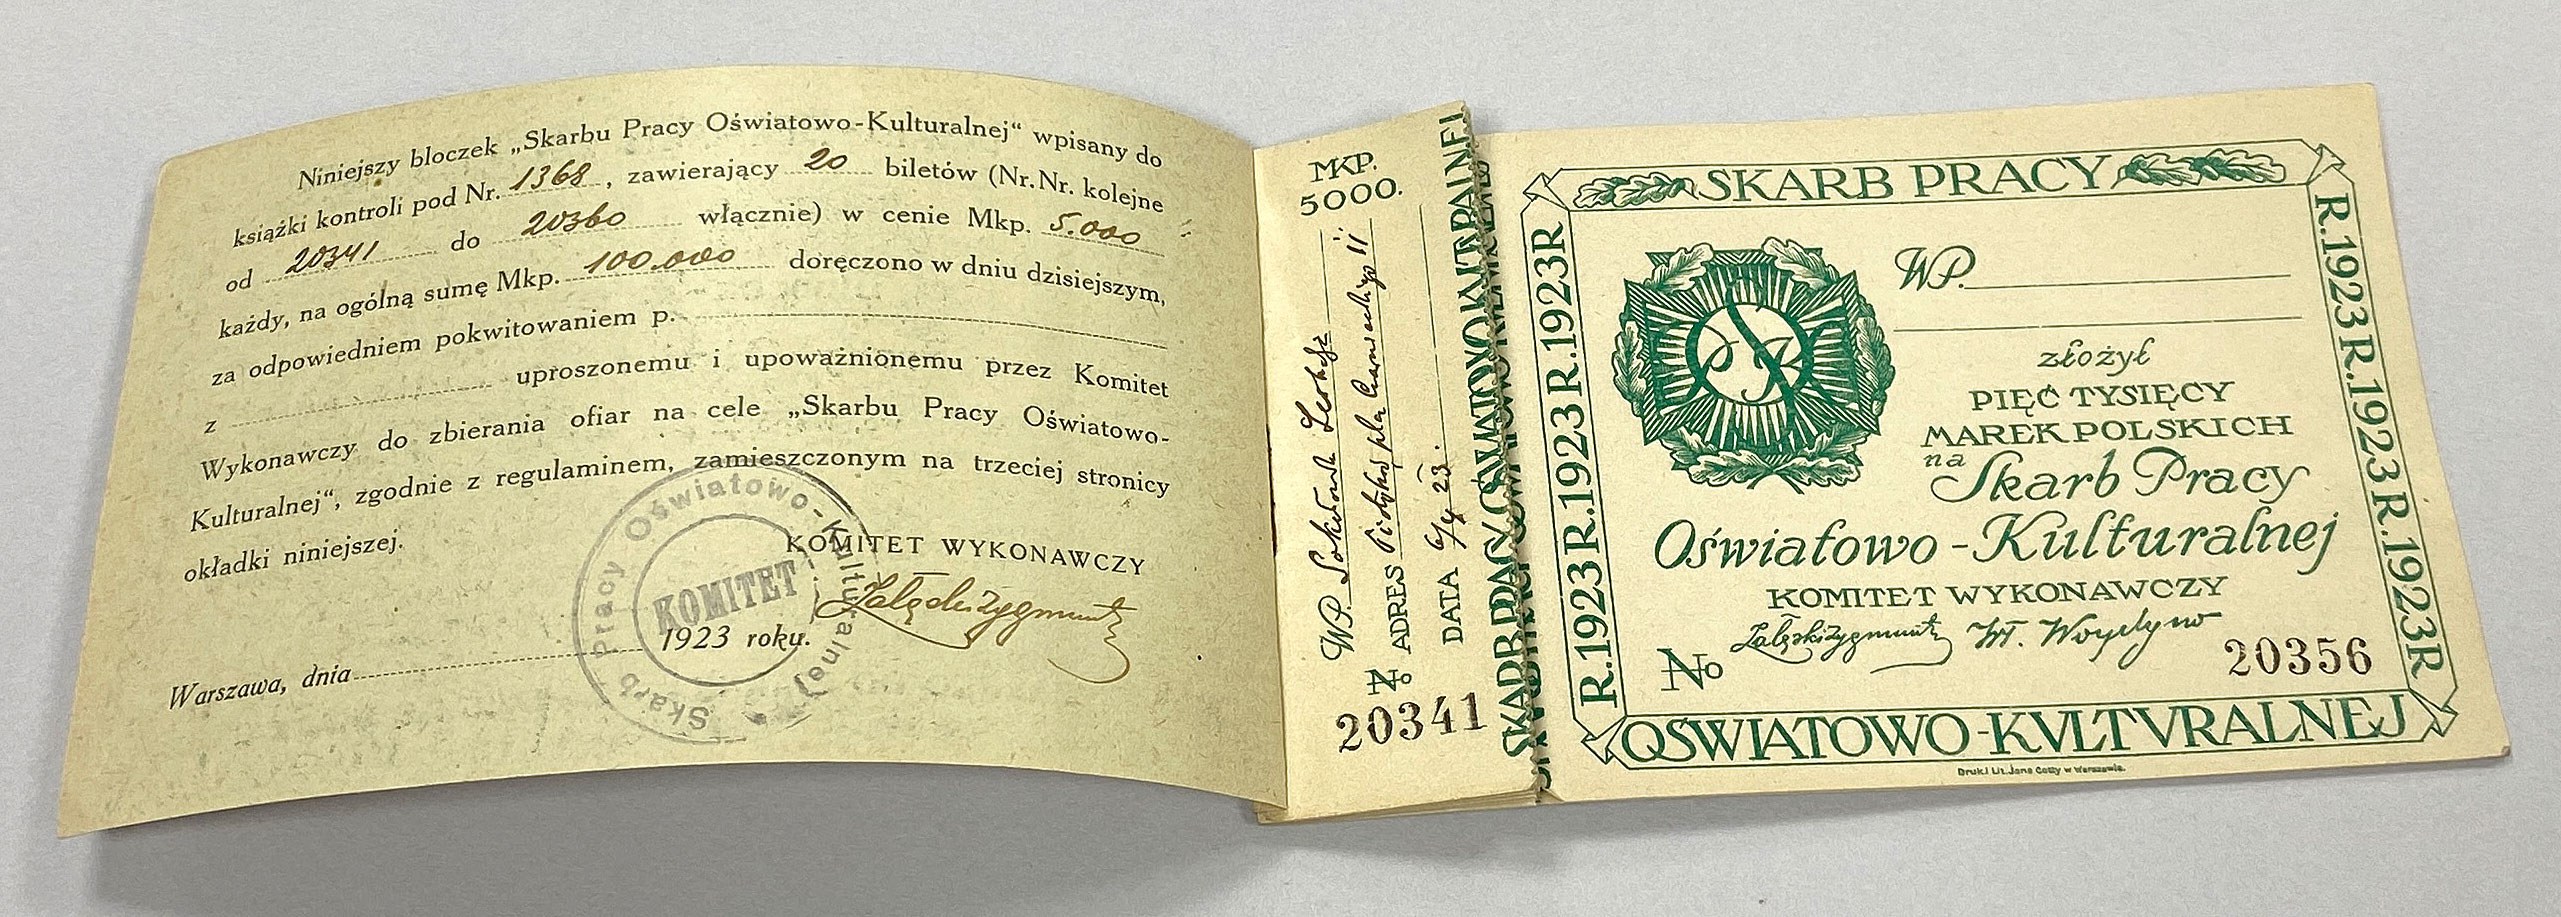 Niniejszy bloczek „Skarbu Pracy Oświatowo-Kulturalnej“ wpisany do
książki kontroli pod Nr. 1368, zawierający 20 biletów (Nr.Nr. kolejne
od 20341 do 20360 włącznie) w cenie Mkp. 5.000
każdy, na ogólną sumę Mkp. 100.000 doręczono w dniu dzisiejszym,
za odpowiedniem pokwitowaniem p.
z uproszonemu i upoważnionemu przez Komitet
Wykonawczy do zbierania ofiar na cele „Skarbu Pracy Oświatowo-
Kulturalnej“, zgodnie z regulaminem, zamieszczonym na trzeciej stronicy
okładki niniejszej.
KOMITET WYKONAWCZY
Zaleski Zygmunt
Warszawa, dnia 1923 roku.
Skarb Pracy Oświatowo-Kulturalnej
KOMITET
MKP.
5000.
WP.
ADRES
DATA
№
20341
SKARB PRACY OŚWIATOWO KULTURALNEJ
SKARB PRACY
R.1923R.1923R.1923R
R.1923R.1923R.1923R
WP.
złożył
PIĘĆ TYSIĘCY
MAREK POLSKICH
na Skarb Pracy
Oświatowo-Kulturalnej
KOMITET WYKONAWCZY
Zaleski Zygmunt Wł. Woydyno
№ 20356
OŚWIATOWO-KVLTVRALNEJ
Druk.i Lit. Jana Cotty w Warszawie.